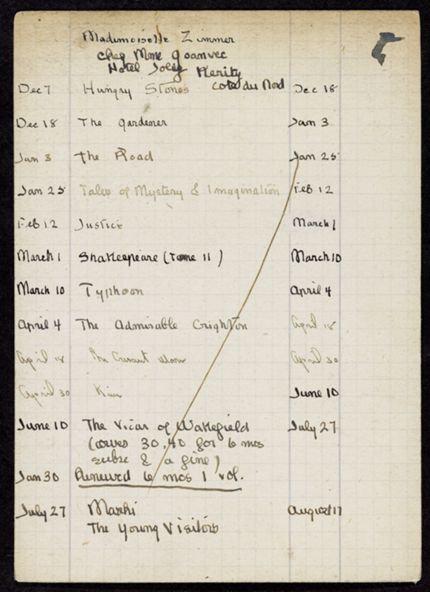 Mademoiselle Zimmer
chez Mme Joanvec
Hotel Joley Merity
Dec 7 Hungry Stones Cote du Nord Dec 18
Dec 18 The Gardener Jan 3
Jan 3 The Road Jan 25
Jan 25 Tales of Mystery & Imagination Feb 12
Feb 12 Justice March 1
March 1 Shakespeare (Tome 11) March 10
March 10 Typhoon April 4
April 4 The Admirable Crighton April 18
April 18 April 30
April 30 Kim June 10
June 10 The Vicar of Wakefield July 27
(owes 30.40 for 6 mos
subs & a fine)
Jan 30 Renewed 6 mos 1 vol.
July 27 Mashi August 17
The Young Visitors